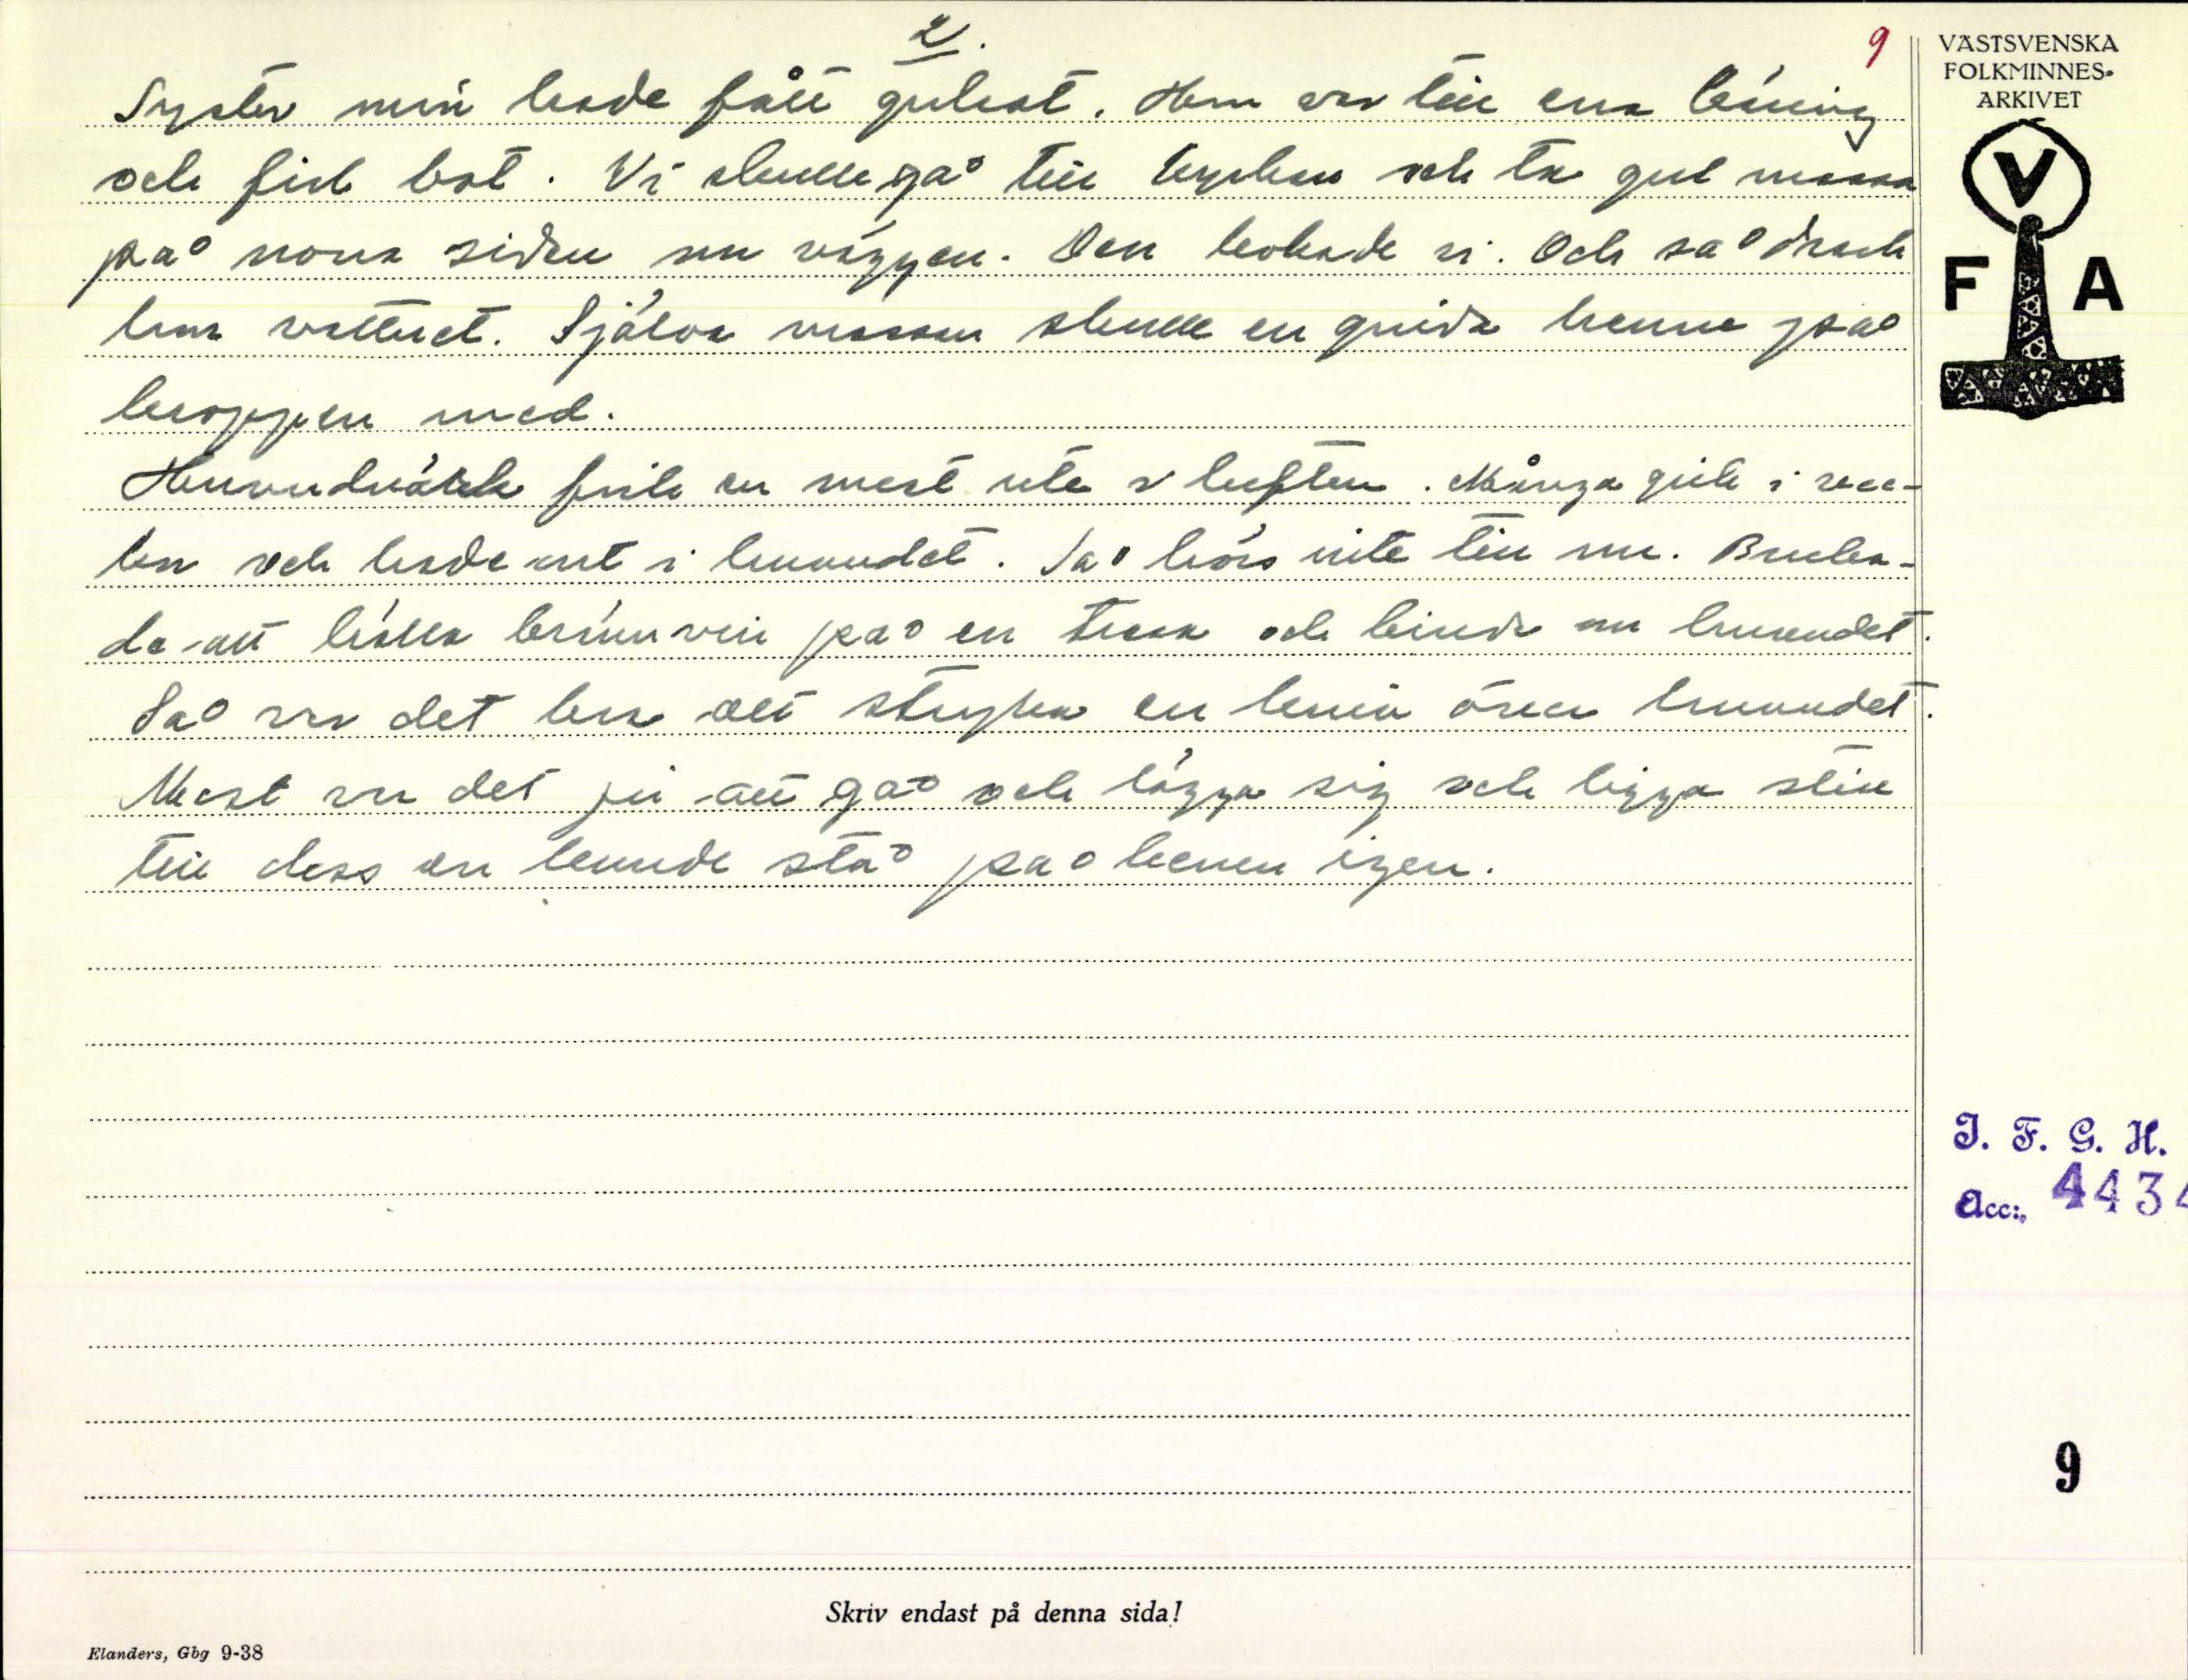 2.
9
Syster min hade fått gulsot. Hon var till ena läning
och fick bot. Vi skulle gå till kyrkan och ta gul mossa
på norra sidan om väggen. Den kokade vi. Och så drack
hon vattnet. Själva mossan skulle en gnida henne på
kroppen med.
Huvudvärk fick en mest ute i luften. Många gick i sval-
ka och hade ont i huvudet. Så hörs inte till nu. Bruka-
de att hälla brännvin på en trasa och binda om huvudet.
Så var det bra att stryka en kniv över huvudet.
Mest var det ju att gå och lägga sig och ligga still
till dess en kunde stå på benen igen.
VÄSTSVENSKA
FOLKMINNES-
ARKIVET
V
F A
I. F. G. H.
Acc:, 4434
9
Skriv endast på denna sida!
Elanders, Gbg 9-38